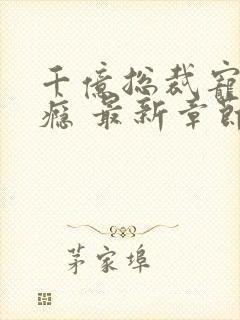 千億总裁寵
瘾 最新章節
茅家埠